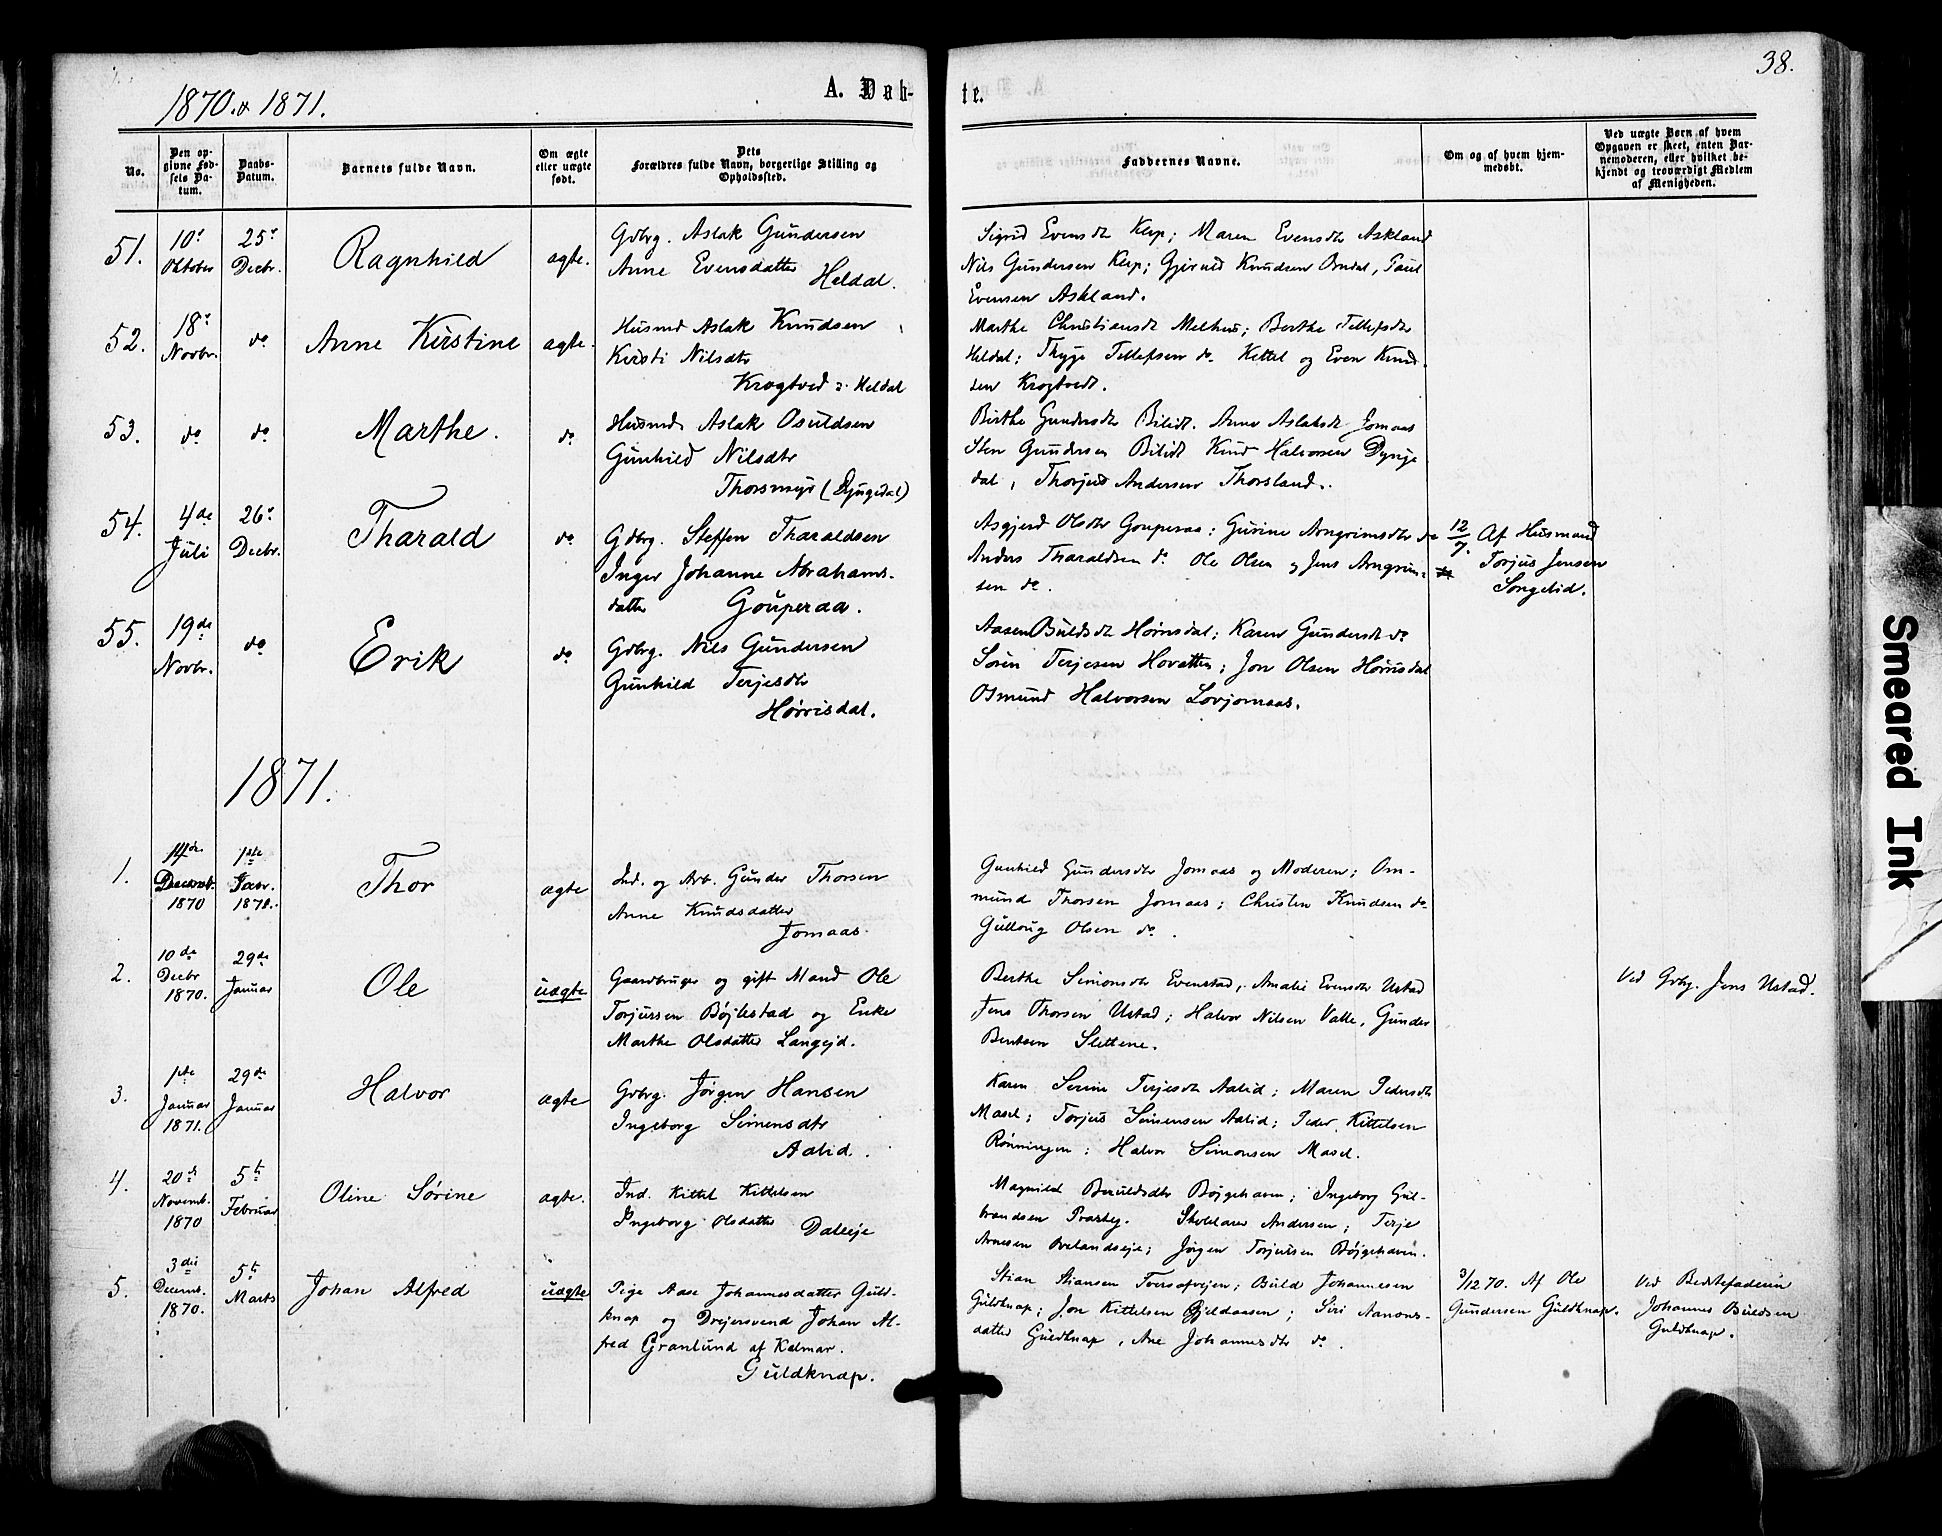 1870. & 1871.
A. Døb-
te.
38.
No.
Den op-
givne Fød-
sels Da-
tum.
Daabs-
Datum.
Barnets fulde Navn.
Om ægte
eller uægte
født.
Dets
Forældres fulde Navn, borgerlige Stilling og
Opholdssted.
Faddernes Navne.
Om og af hvem hjem-
medøbt.
Ved uægte Børn af hvem
Opgaven er skeet, enten Bar-
nemoderen, eller hvilket be-
kjendt og troværdigt Medlem
af Menigheden.
51.
10de
Oktober
25de
Decbr.
Ragnhild
ægte.
Gdbrg. Aslak Gundersen
Anne Evensdatter
Heldal.
Sigrid Evensdt Klep; Maren Evensdtr Askland
Nils Gundersen Klep; Gjeruld Knudsen Omdal, Paul
Evensen Askland.
52.
18de
Novbr.
do
Anne Kirstine
ægte.
Husmd Aslak Knudsen
Kirsti Nilsdtr
Krogtved u. Heldal
Marthe Christiansdt Melhus; Berthe Tellefsdtr
Heldal; Thyge Tellefsen do. Kittel og Even Knud-
sen Krogtvedt.
53.
do
do
Marthe.
do
Husmd. Aslak Osuldsen
Gunhild Nilsdtr
Thorsmyr (Dyngedal)
Birthe Gundersdtr Bilidt. Anne Aslaksdt Jomaas
Sten Gundersen Bilidt Knud Halvorsen Dynge
dal, Thorjus Andersen Thorsland.
54.
4de
Juli
26de
Decbr.
Tharald
do
Gdbrg. Steffen Tharaldsen
Inger Johanne Abrahams-
datter Gouperaa.
Asgjerd Olsdtr Gouperaa: Gurine Arngrimsdtr do
Anders Tharaldsen do. Ole Olsen og Jens Arngrim-
sen do.
12/7. Af Husmand
Torjus Jensen
Songelid.
55.
19de
Novbr.
do
Erik
do
Gdbrg. Nils Gundersen
Gunhild Terjesdtr
Hørrisdal.
Aasen Buldsdt Hørrisdal; Karen Gundersdt do
Søren Terjesen Hovatten; Jon Olsen Hørrisdal
Osmund Halvorsen Lovjomaas.
1871.
1.
14de
Decemb.
1870
1ste
Jabr.
1871.
Thor
ægte
Ind. og Arb. Gunder Thorsen
Anne Knudsdatter
Jomaas.
Gunhild Gundersdtr Jomaas og Moderen; Om-
mund Thorsen Jomaas; Christen Knudsen do
Gulloug Olsen do.
2.
10de
Decbr
1870.
29de
Januar
Ole
uægte
Gaardbruger og gift Mand Ole
Torjussen Bøjlestad og Enke
Marthe Olsdatter Langejd.
Berthe Simonsdtr Evenstad, Amalie Evensdtr Ustad
Jens Thorsen Ustad; Halvor Nilsen Valle, Gunder
Bentsen Slettene.
Ved Grbg. Jens Ustad.
3.
1ste
Januar
1871.
29de
Januar
Halvor
ægte
Gdbrg. Jørgen Hansen
Ingeborg Simensdtr
Aalid.
Karen Serine Terjesdt Aalid; Maren Pedersdtr
Masel; Torjus Simensen Aalid; Peder Kittelsen
Rønningen; Halvor Simonsen Masel.
4.
20de
Novemb.
1870
5te
Februar
Oline Sørine
ægte.
Ind. Kittel Kittelsen
Ingeborg Olsdatter Daleeje
Magnild Beruldsdtr Bøjgehaven; Ingeborg Gul-
brandsen Prastej. Skolelærer Andersen; Terje
Arnesen Ovelandseje; Jørgen Torjussen Bøjgehaven.
5.
3die
Decemb.
1870.
5te
Marts
Johan Alfred
uægte
Pige Aase Johannesdatter Guld-
knap og Drejersvend Johan Al-
fred Granlund af Kalmar.
Guldknap.
Stian Stiansen Tversafvejen; Buld Johannesen
Guldknap; Jon Kittelsen Gjeldaasen; Siri Aanons-
datter Guldknap, Ane Johannesdtr do.
3/12 70. Af Ole
Gundersen Guldknap.
Ved Bedstefaderen
Johannes Buldsen
Guldknap.
Smeared Ink